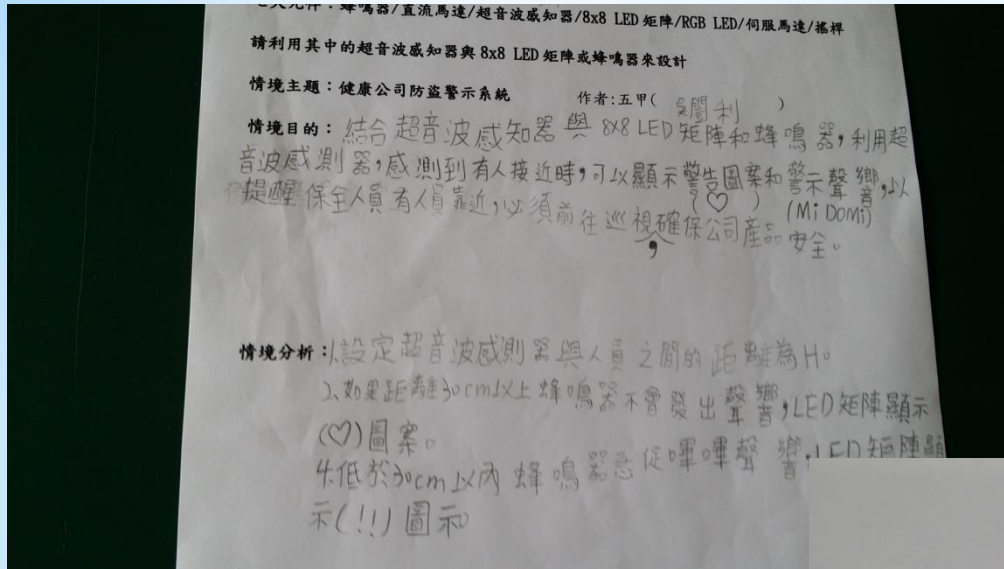 元件：蜂鳴器/直流馬達/超音波感知器/8x8 LED 矩陣/RGB LED/伺服馬達/搖桿
請利用其中的超音波感知器與 8x8 LED 矩陣或蜂鳴器來設計
情境主題：健康公司防盜警示系統 作者:五甲( 利 )
情境目的： 結合超音波感知器與 8x8 LED 矩陣和蜂鳴器，利用超
音波感測器，感測到有人接近時，可以顯示警告圖案和警示聲響，以
(♡) (Mi DOMi)
提醒保全人員有人員靠近，必須前往巡視，確保公司產品安全。
情境分析：1、設定超音波感測器與人員之間的距離為H。
2、如果距離30cm以上蜂鳴器不會發出聲響，LED矩陣顯示
(♡)圖案。
4、低於30cm以內蜂鳴器急促嗶嗶聲響，LED矩陣顯
示(!!)圖示。